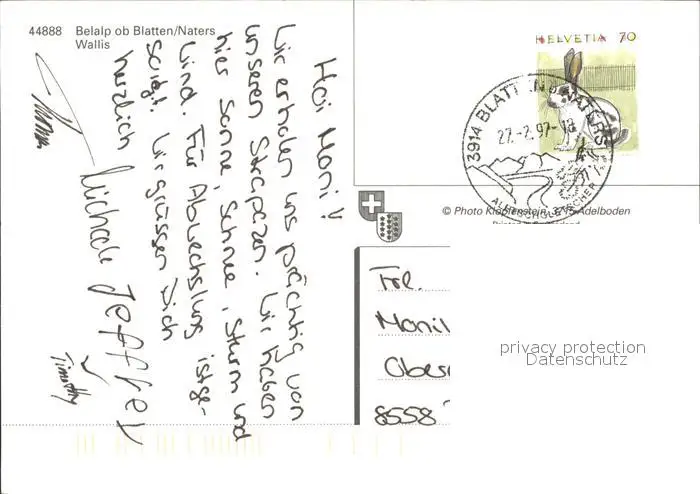 44888 Belalp ob Blatten/Naters
Wallis
HELVETIA 70
3914 BLATTEN B. NATERS
27.-2.97-18
© Photo Klopfenstein, 3715 Adelboden
Hoi Moni!
Wir erholen uns prächtig von
unseren Strapazen. Wir haben
hier Sonne, Schnee, Sturm und
Wind. Für Abwechslung ist ge-
sorgt. Wir grüssen Dich
herzlich
Michael Jeffrey
Timothy
Frl.
Moni
Ober
8558
privacy protection
Datenschutz